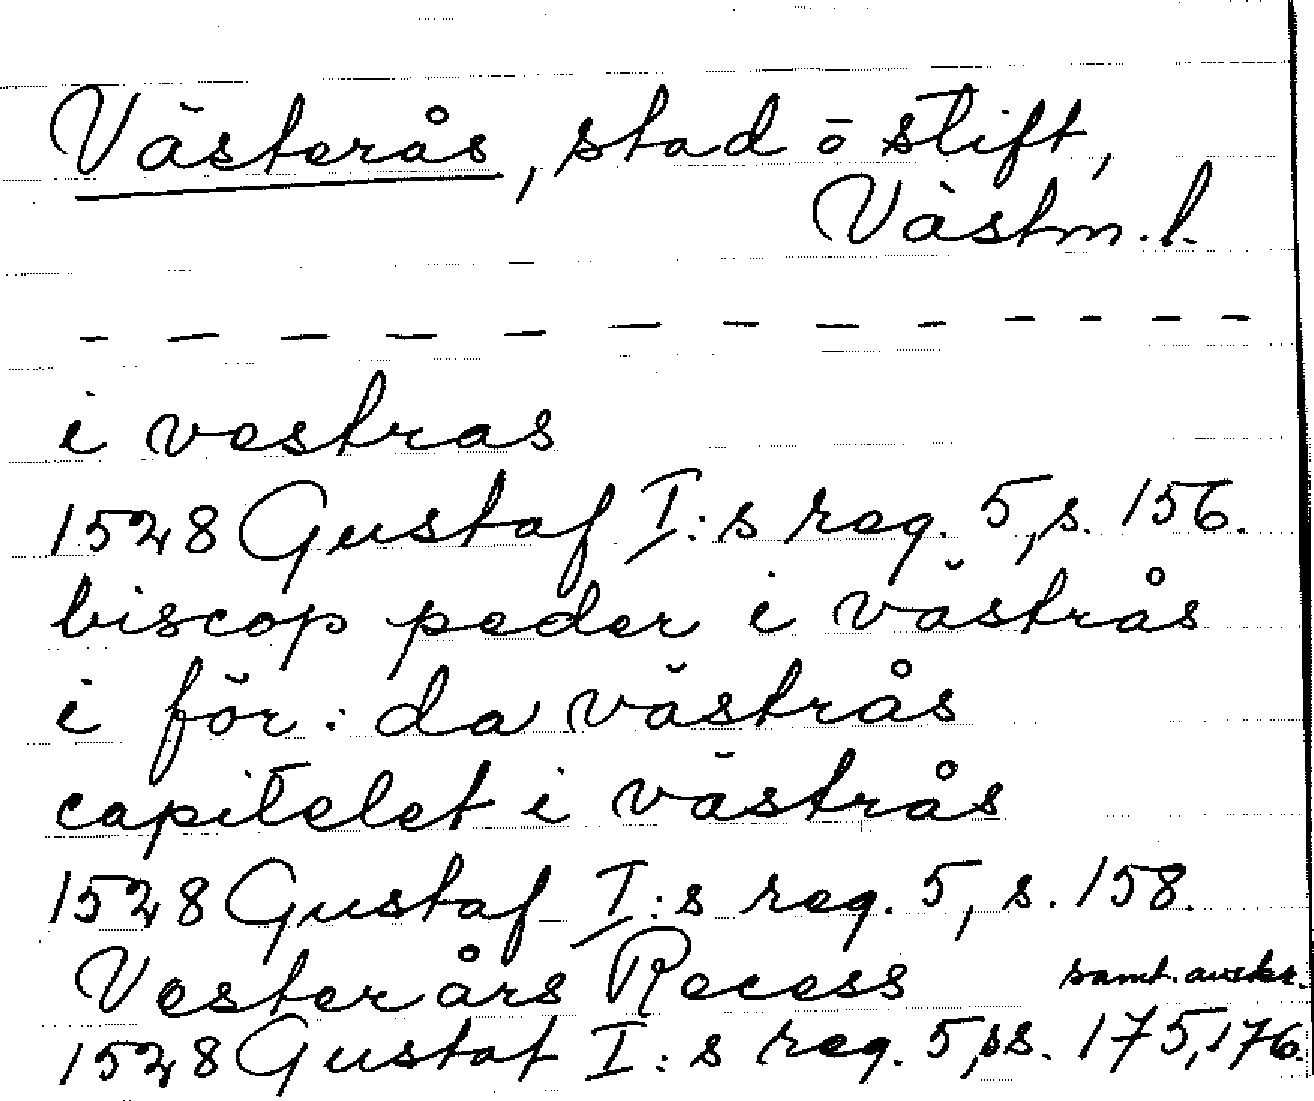 Västerås, stad ō stift,
Västm. l.
i vestras
1528 Gustaf I:s reg. 5, s. 156.
biscop peder i västrås
i för. da västrås
capitelet i västrås
1528 Gustaf I:s reg. 5, s. 158.
Vesterårs Recess samt. avskr.
1528 Gustaf I:s reg. 5, ss. 175, 176.